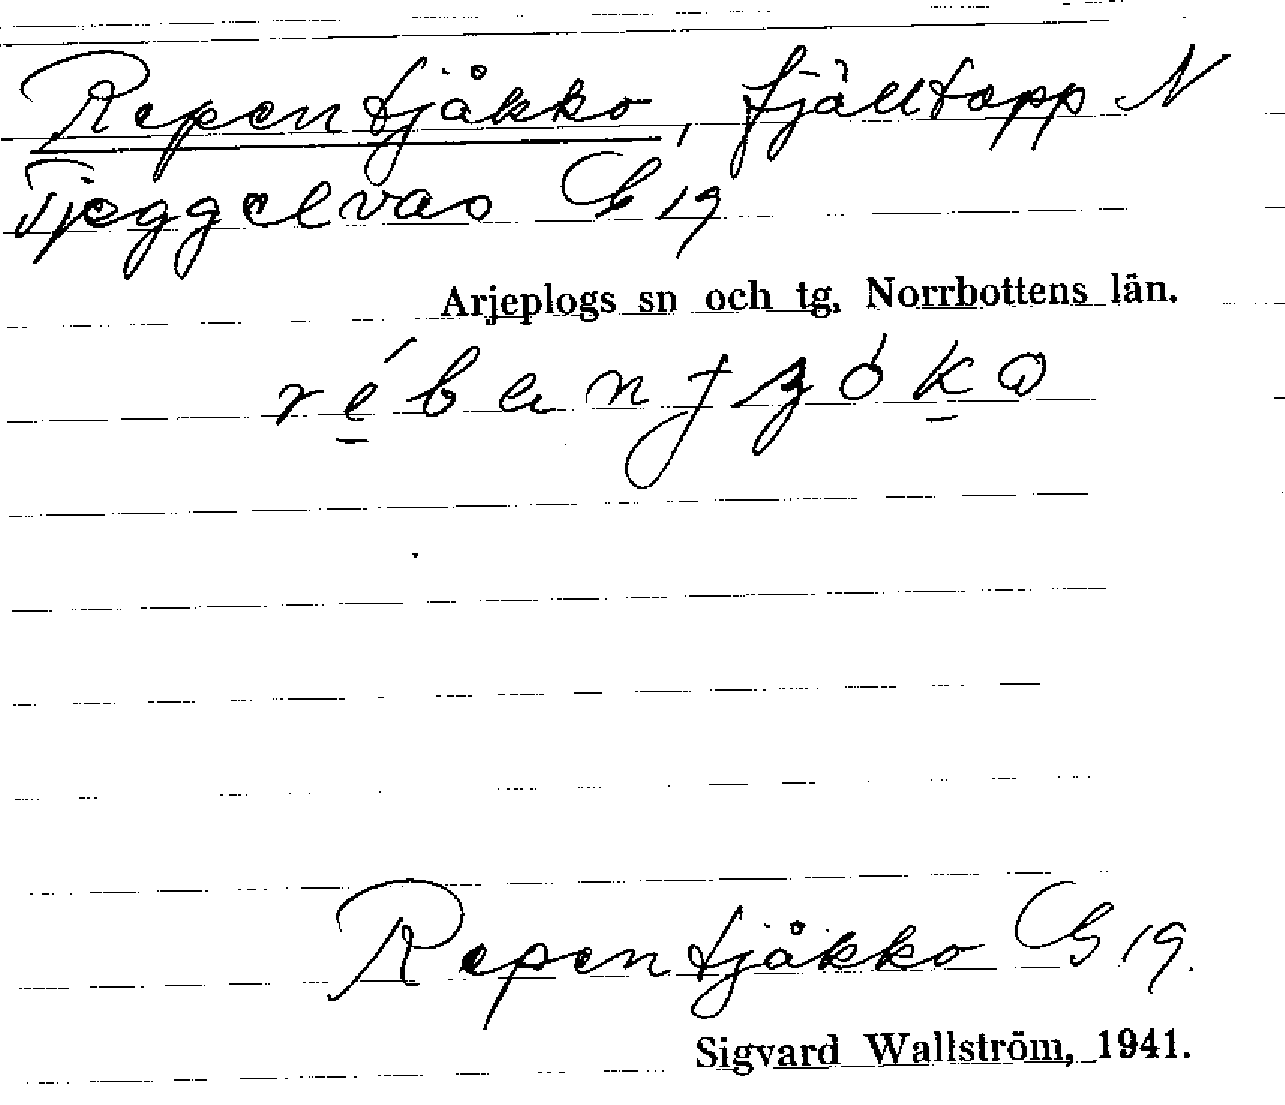 Repentjåkko, fjälltopp N
Tjeggelvas G 19
Arjeplogs sn och tg, Norrbottens län.
Repentjåkko G 19.
Sigvard Wallström, 1941.